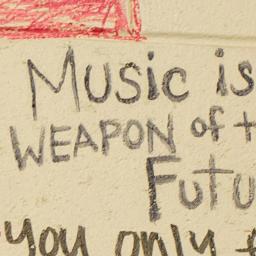 Music is
WEAPON of t
Futu
you only